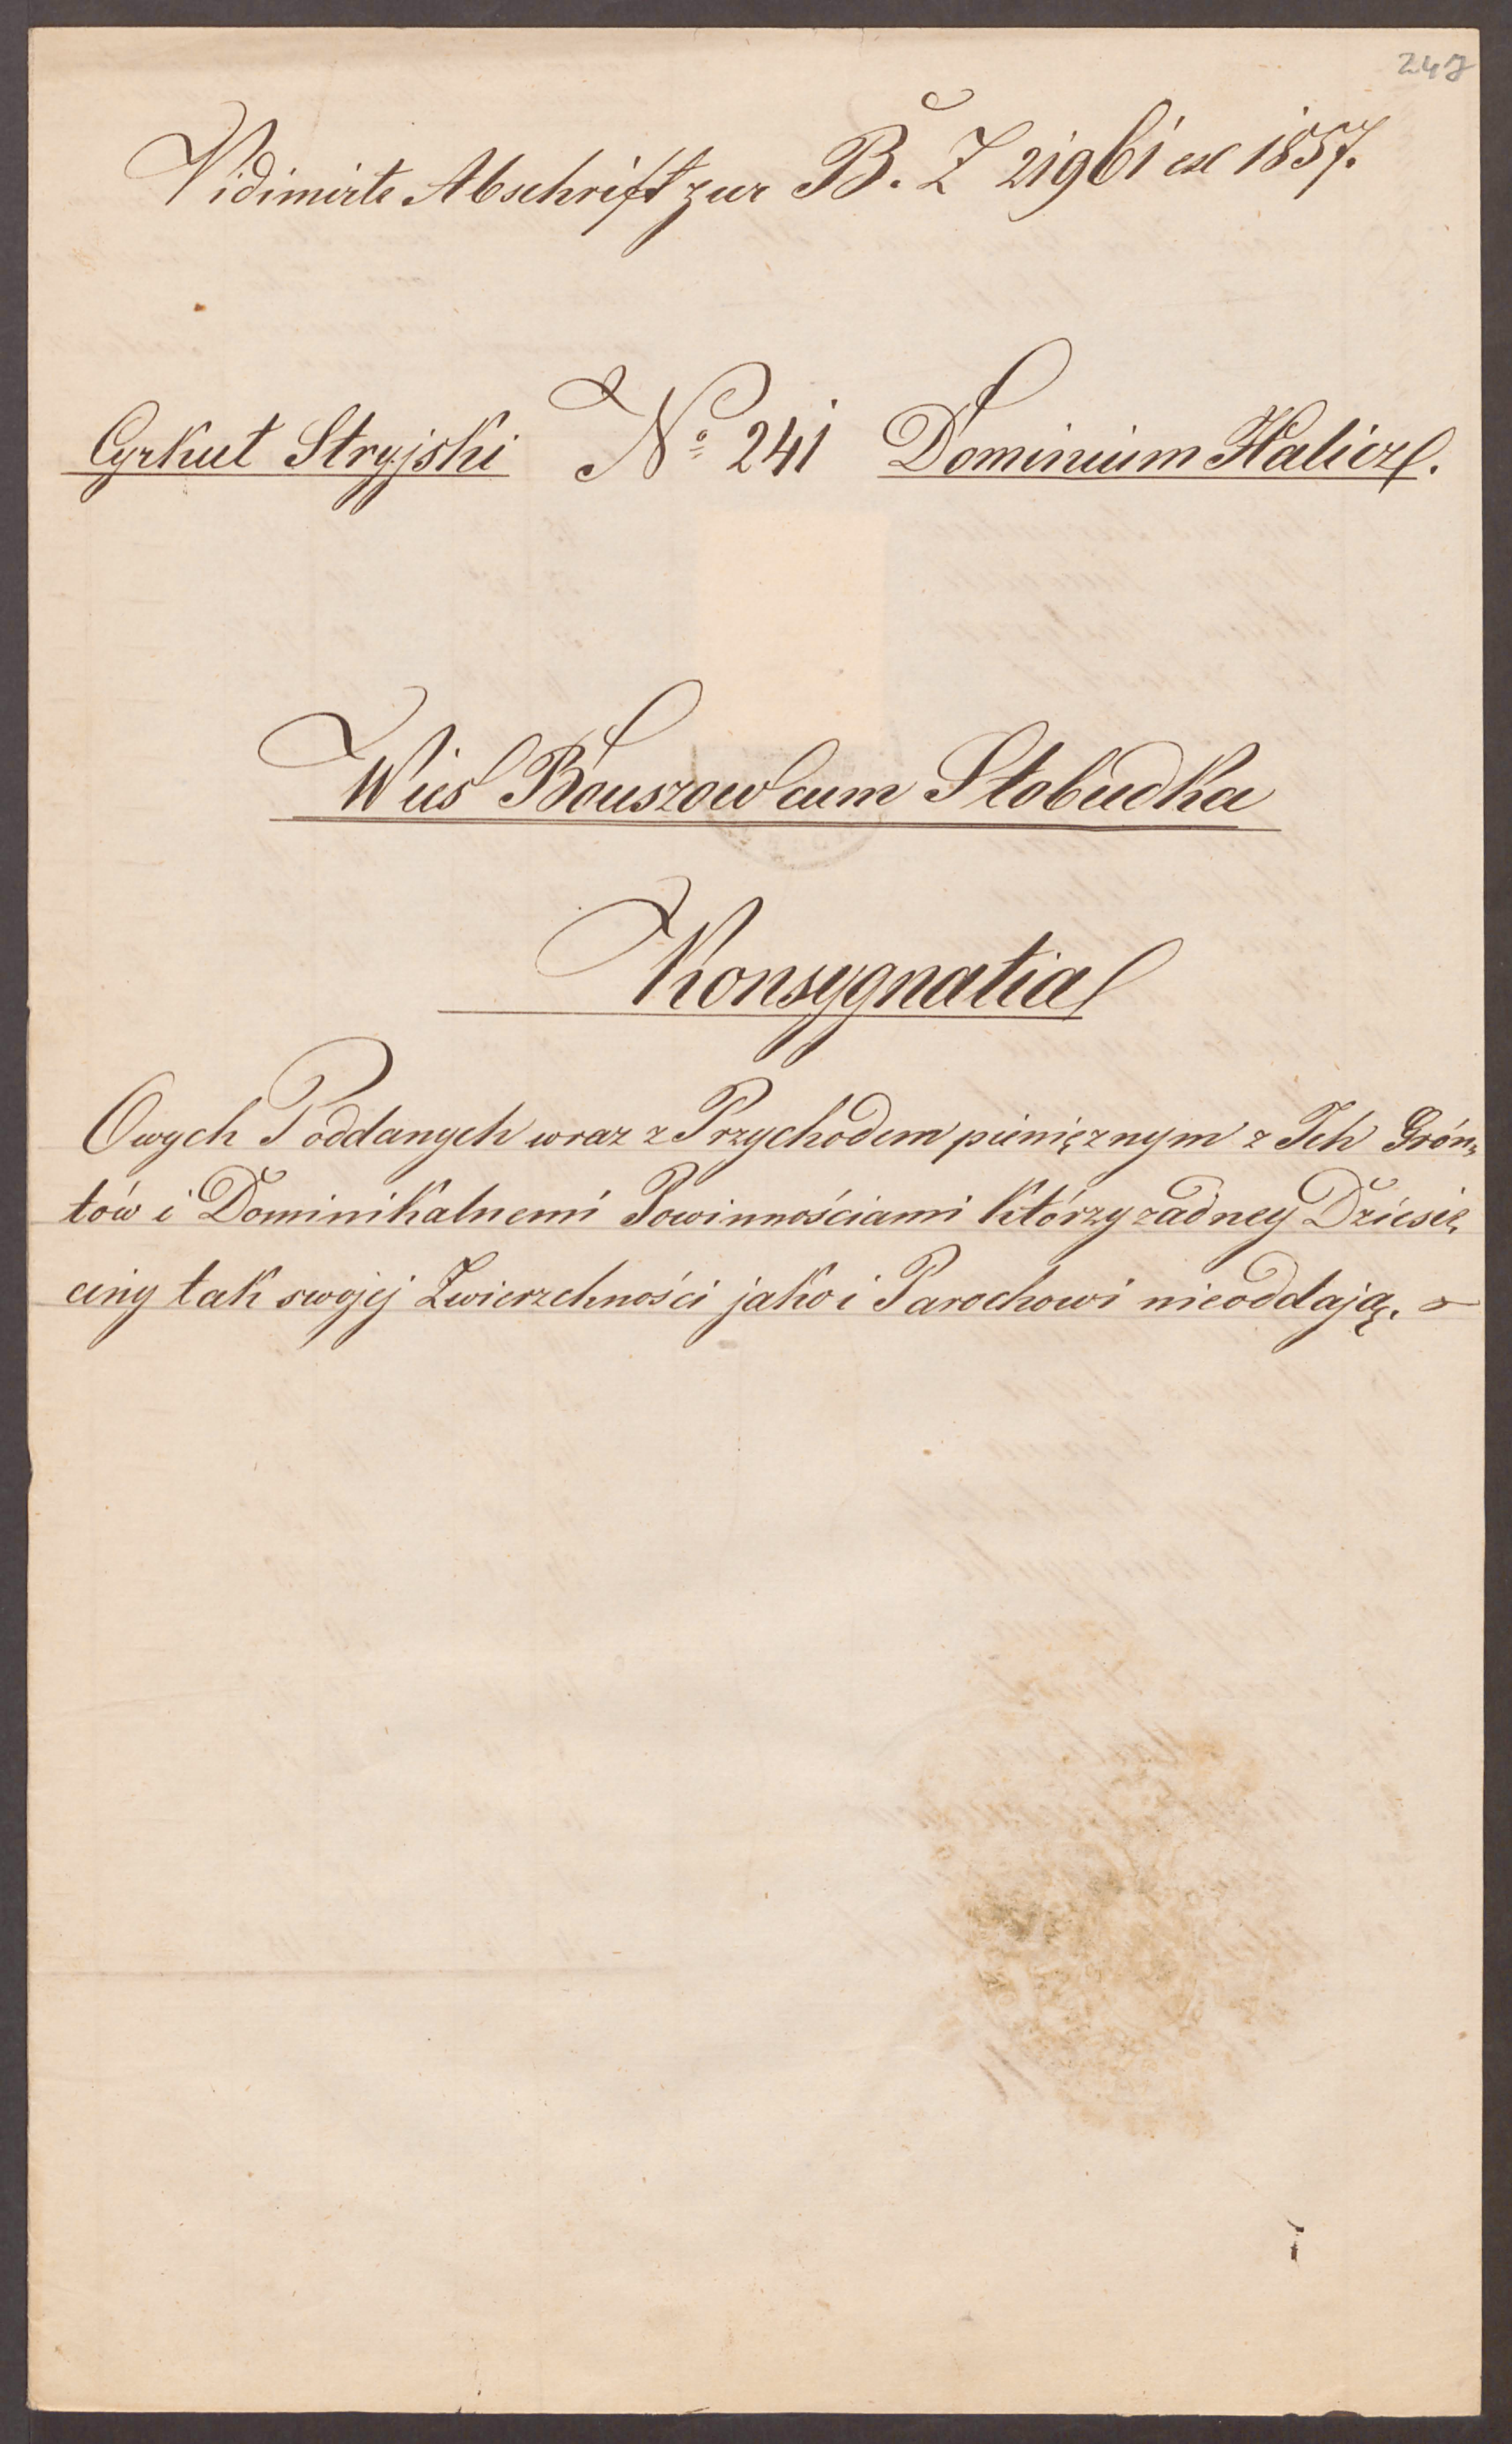 247
Vidimirte Abschrift zur B. Z 21961 ex 1857.
Cyrkuł Stryjski No 241 Dominium Halicz.
Wieś Bouszow cum Słobudka
Konsygnatia
Owych Poddanych wraz z Przychodem pieniężnym z Ich Grón„
tów i Dominikalnemi Powinnościami którzy żadney Dziesię„
ciny tak swojej Zwierzchności jako i Parochowi nieoddają.